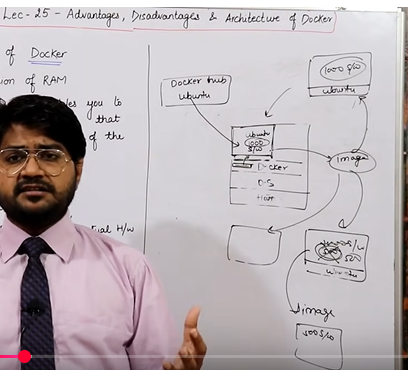 Lec-25 - Advantages, Disadvantages & Architecture of Docker
of Docker
ion of RAM
les you to
that
of the
tial H/w
Docker hub
Ubuntu
1000 S/w
Ubuntu
Ubuntu
1000
S/w
Docker
O-S
Image
S/w
500
Ubuntu
Image
500 S/w